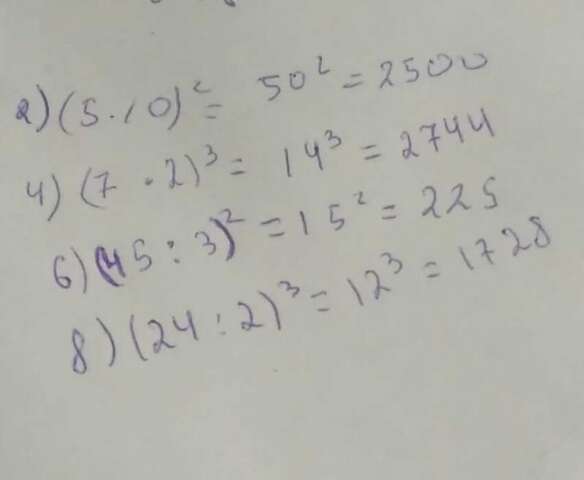 2) (5 · 10)² = 50² = 2500
4) (7 · 2)³ = 14³ = 2744
6) (45 : 3)² = 15² = 225
8) (24 : 2)³ = 12³ = 1728